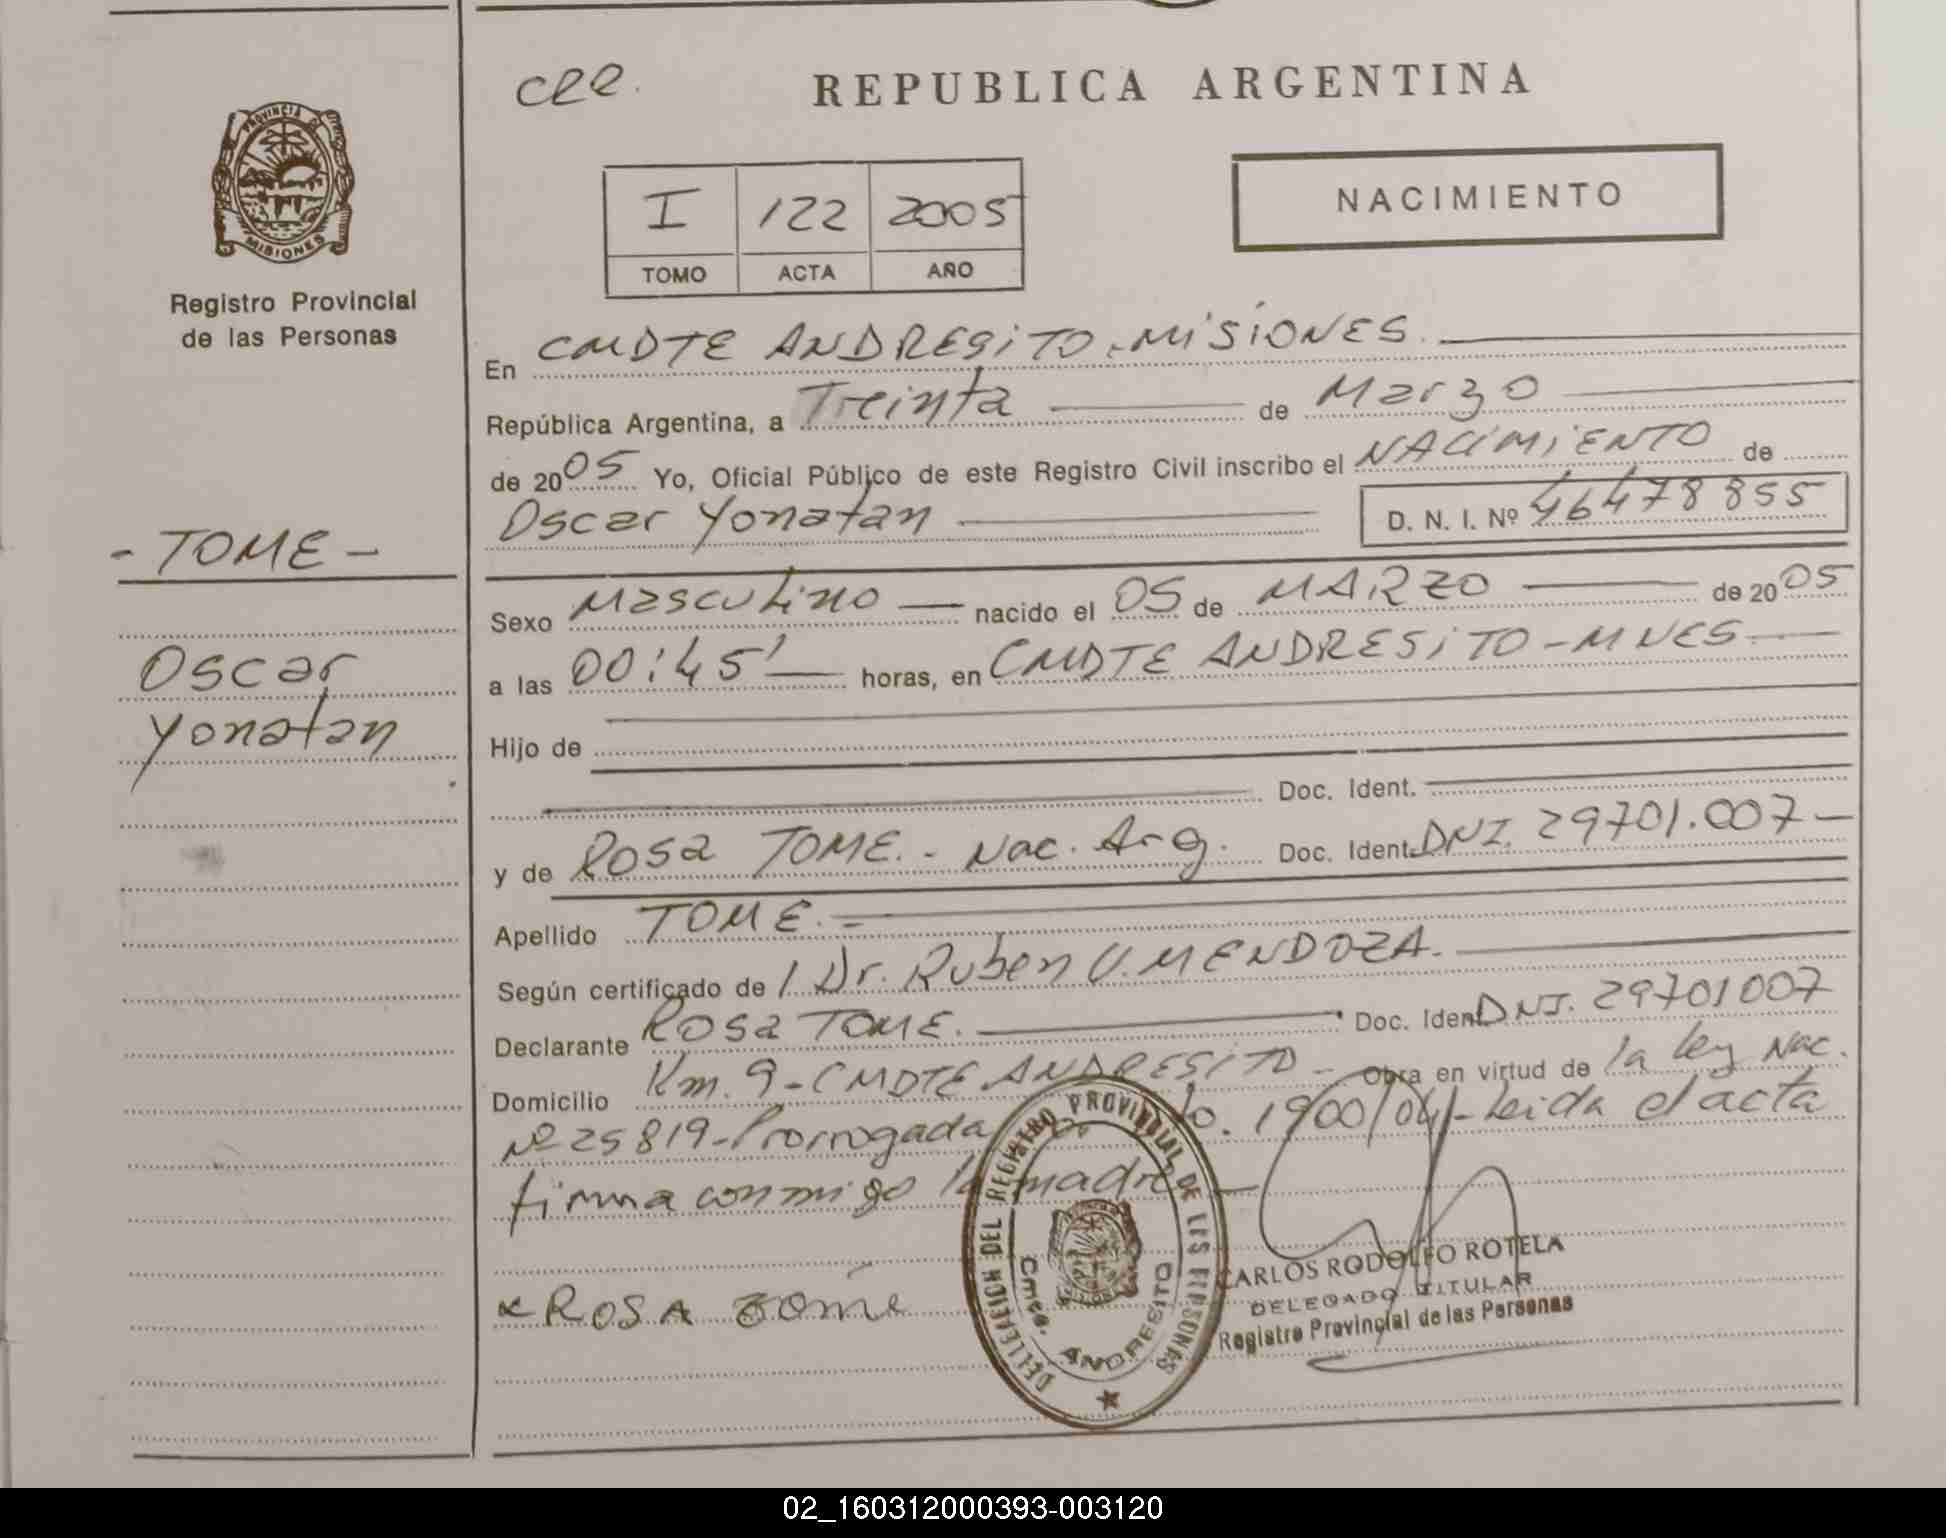 cee.
REPUBLICA ARGENTINA
PROVINCIA DE MISIONES
Registro Provincial
de las Personas
I 122 2005
TOMO ACTA AÑO
NACIMIENTO
En CMDTE ANDRESITO - MISIONES.
República Argentina, a Treinta de Marzo
de 2005 Yo, Oficial Público de este Registro Civil inscribo el NACIMIENTO de
Oscar Yonatan D. N. I. Nº 46478855
- TOME -
Oscar
Yonatan
Sexo Masculino nacido el 05 de MARZO de 2005
a las 00:45' horas, en CMDTE ANDRESITO - MNES
Hijo de
Doc. Ident.
y de Rosa TOME. - Nac. Arg. Doc. Ident. DNI. 29701.007 -
Apellido TOME. -
Según certificado de / Dr. Ruben V. MENDOZA.
Declarante Rosa TOME. Doc. Ident. DNI. 29701007
Domicilio Km. 9 - CMDTE ANDRESITO - Obra en virtud de la ley Nac.
Nº 25819 - Prorrogada to. 1900/04 - Leida el acta
firma conmigo la madre -
ROSA tomé
DEL REGISTRO PROVINCIAL DE LAS PERSONAS
Cmte. ANDRESITO
CARLOS RODOLFO ROTELA
DELEGADO TITULAR
Registro Provincial de las Personas
02_160312000393-003120